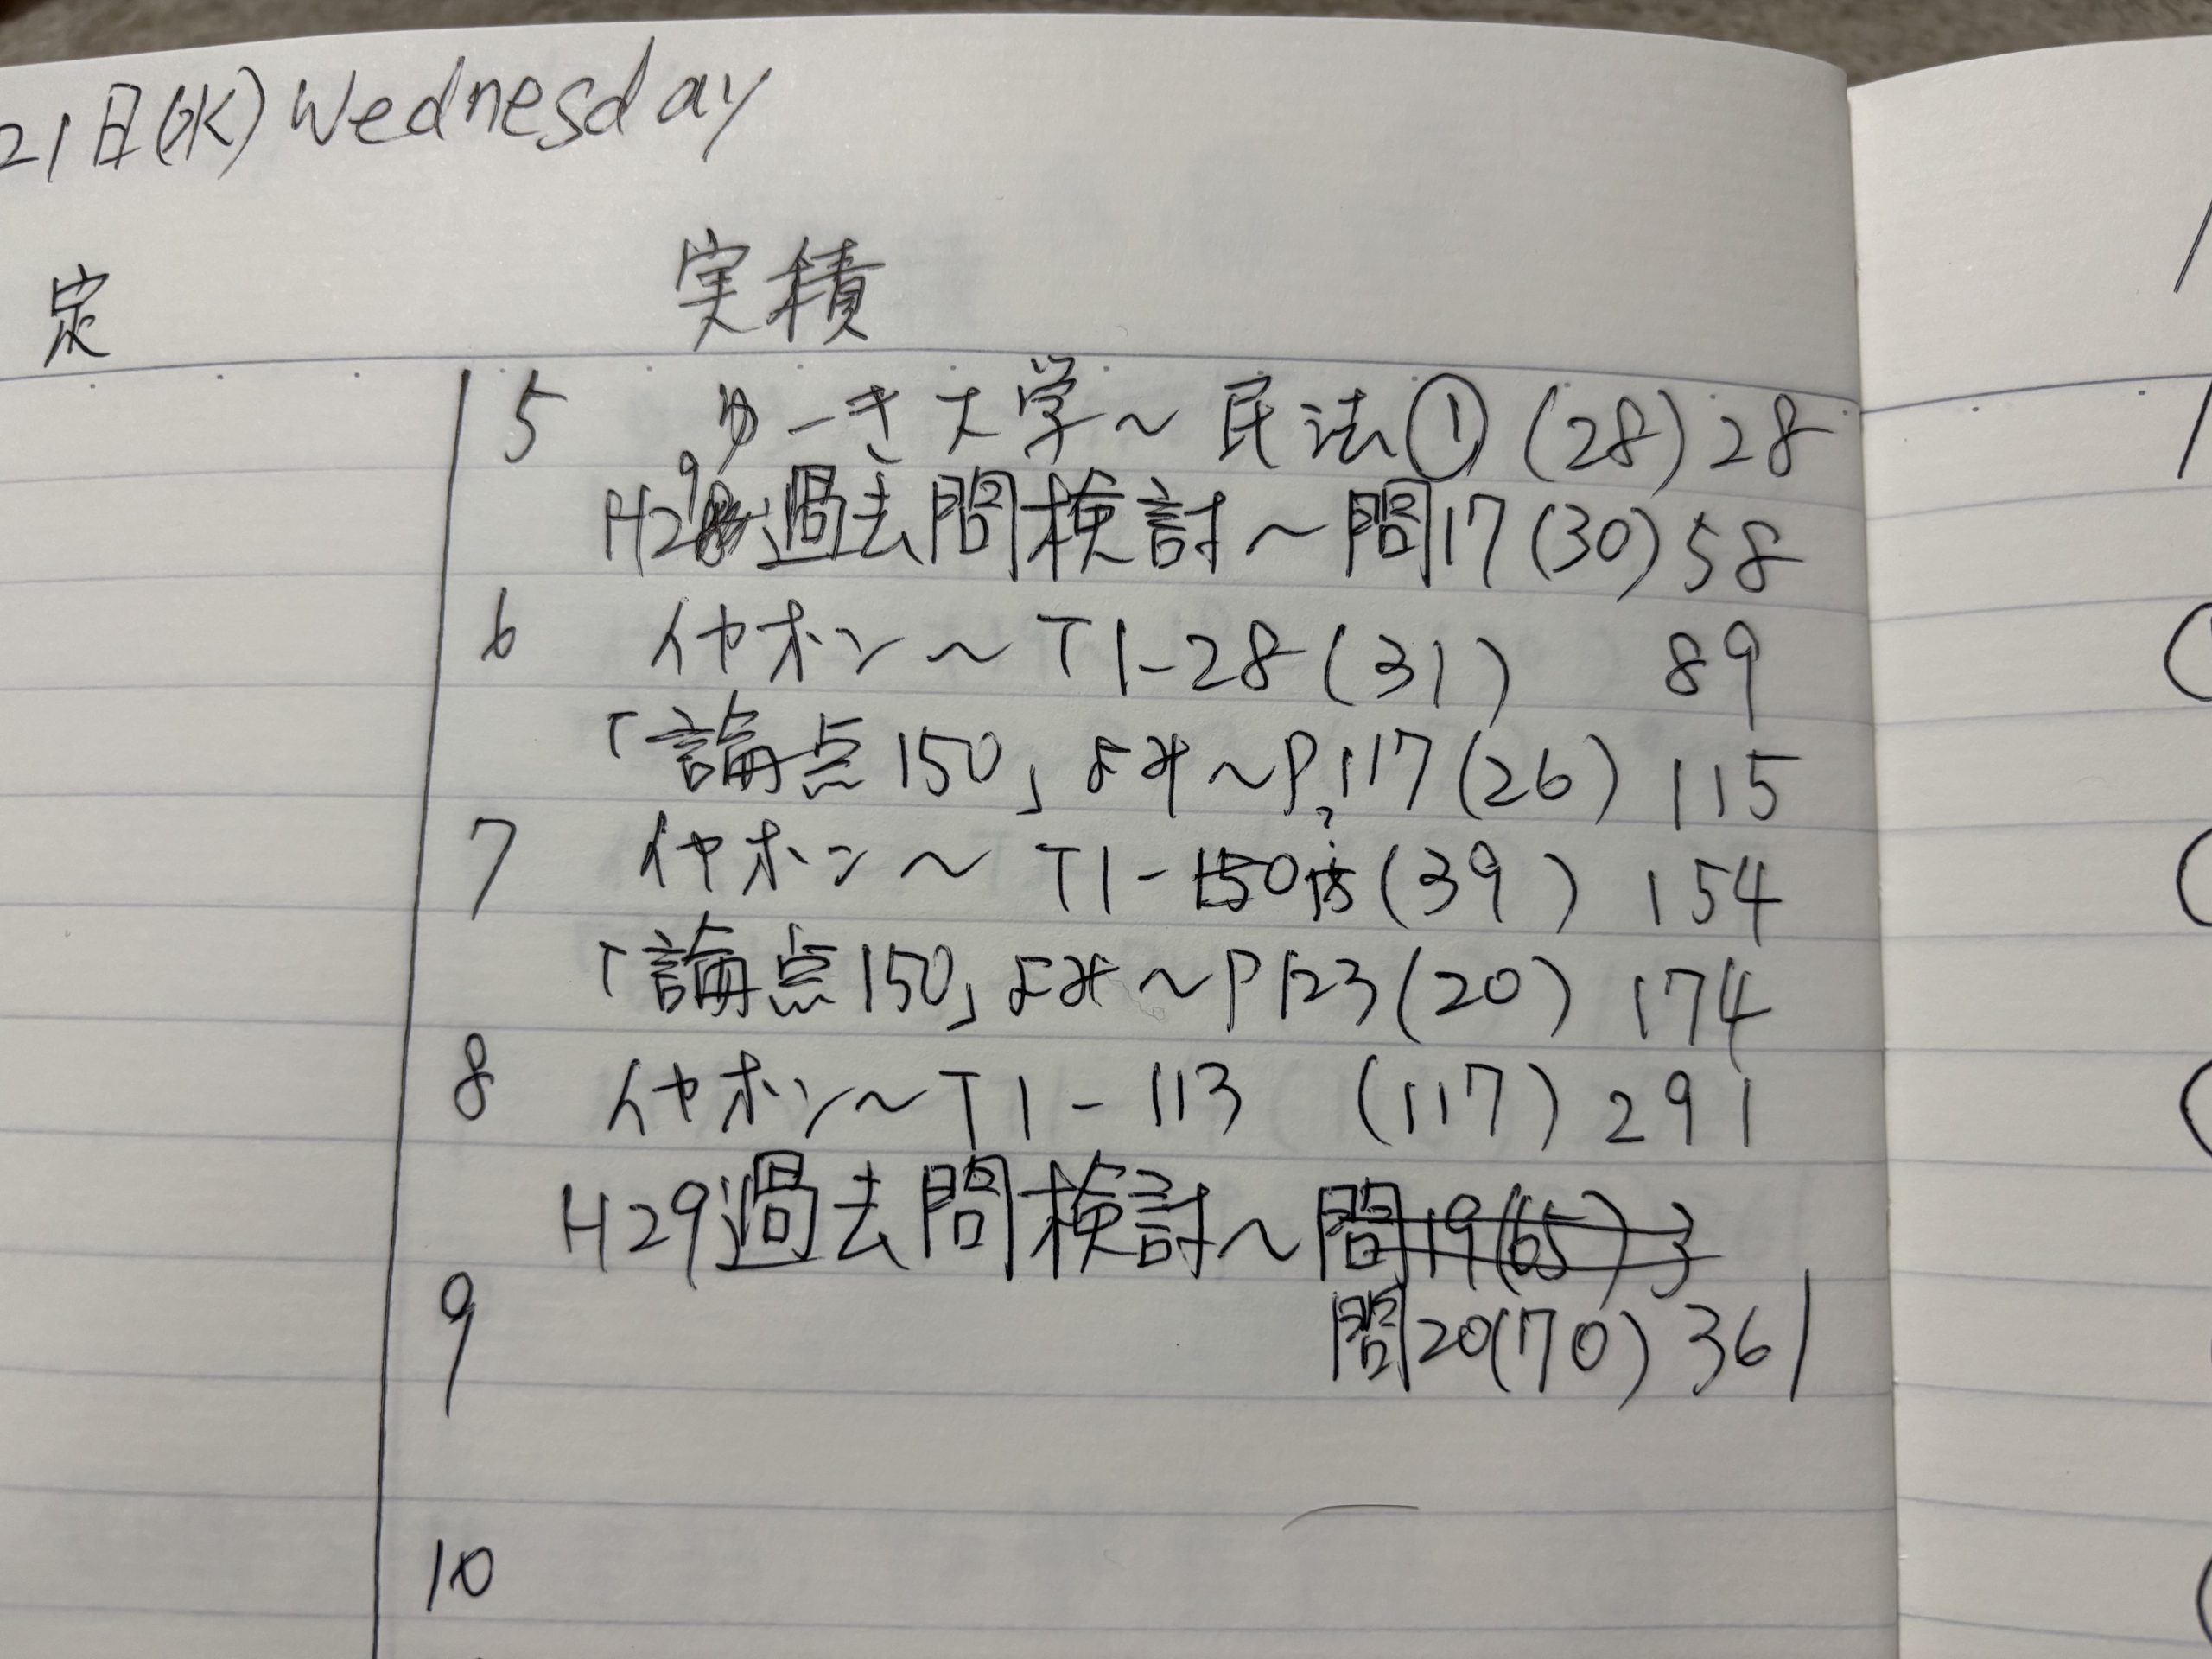 21日(水) Wednesday
定 実績
5 ゆーき大学〜民法① (28) 28
H29過去問検討〜問17 (30) 58
6 イヤホン〜T1-28 (31) 89
「論点150」よみ〜P.117 (26) 115
7 イヤホン〜T1- (39) 154
「論点150」よみ〜P123 (20) 174
8 イヤホン〜T1-113 (117) 291
H29過去問検討〜問19(65) 3
9 問20(70) 361
10